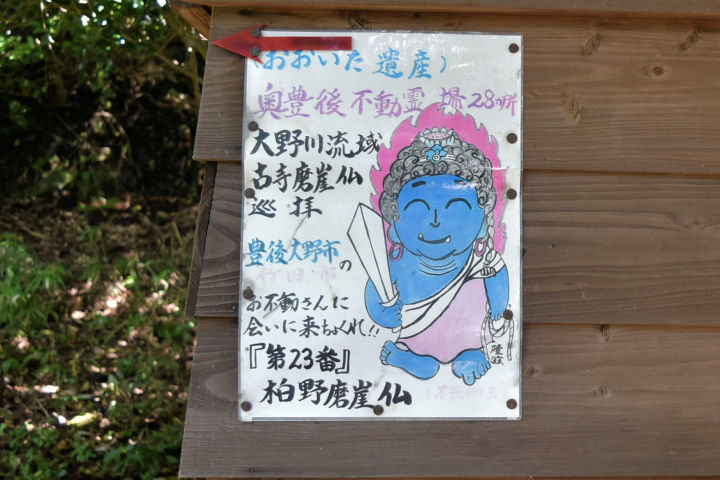 (おおいた遺産)
奥豊後不動霊場28か所
大野川流域
古寺磨崖仏
巡拝
豊後大野市
竹田市
の
お不動さんに
会いに来ちょくれ!!
『第23番』
柏野磨崖仏